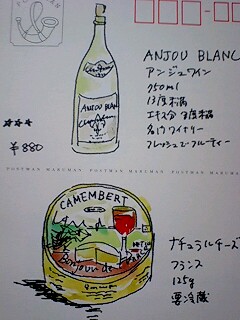 ANJOU BLANC
アンジュワイン
750ml
13度未満
エキス分 3度未満
名門ワイナリー
フレッシュでフルーティー
ANJOU BLANC
★★★
¥880
POSTMAN MARUMAN POSTMAN MARUMAN POSTMAN MARUMAN
CAMEMBERT
ナチュラルチーズ
フランス
125g
要冷蔵